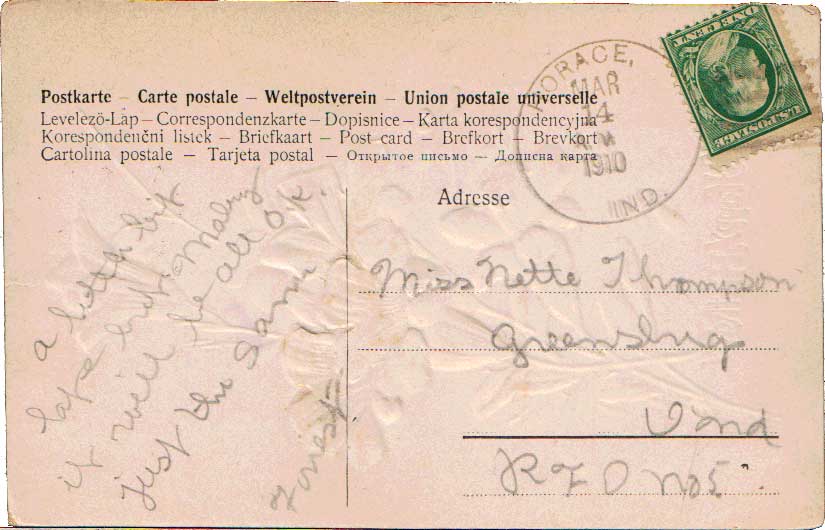 Postkarte – Carte postale – Weltpostverein – Union postale universelle
Levelező-Lap – Correspondenzkarte – Dopisnice – Karta korespondencyjna
Korespondenční listek – Briefkaart – Post card – Brefkort – Brevkort
Cartolina postale – Tarjeta postal – Открытое письмо – Дописна карта
HORACE,
MAR
4
1910
IND.
U.S. POSTAGE
ONE CENT
Adresse
Miss Nette Thompson
Greensburg
Ind
R F D No 5.
a little bit
late but Maby
it will be all O.K.
just the Same
Forest